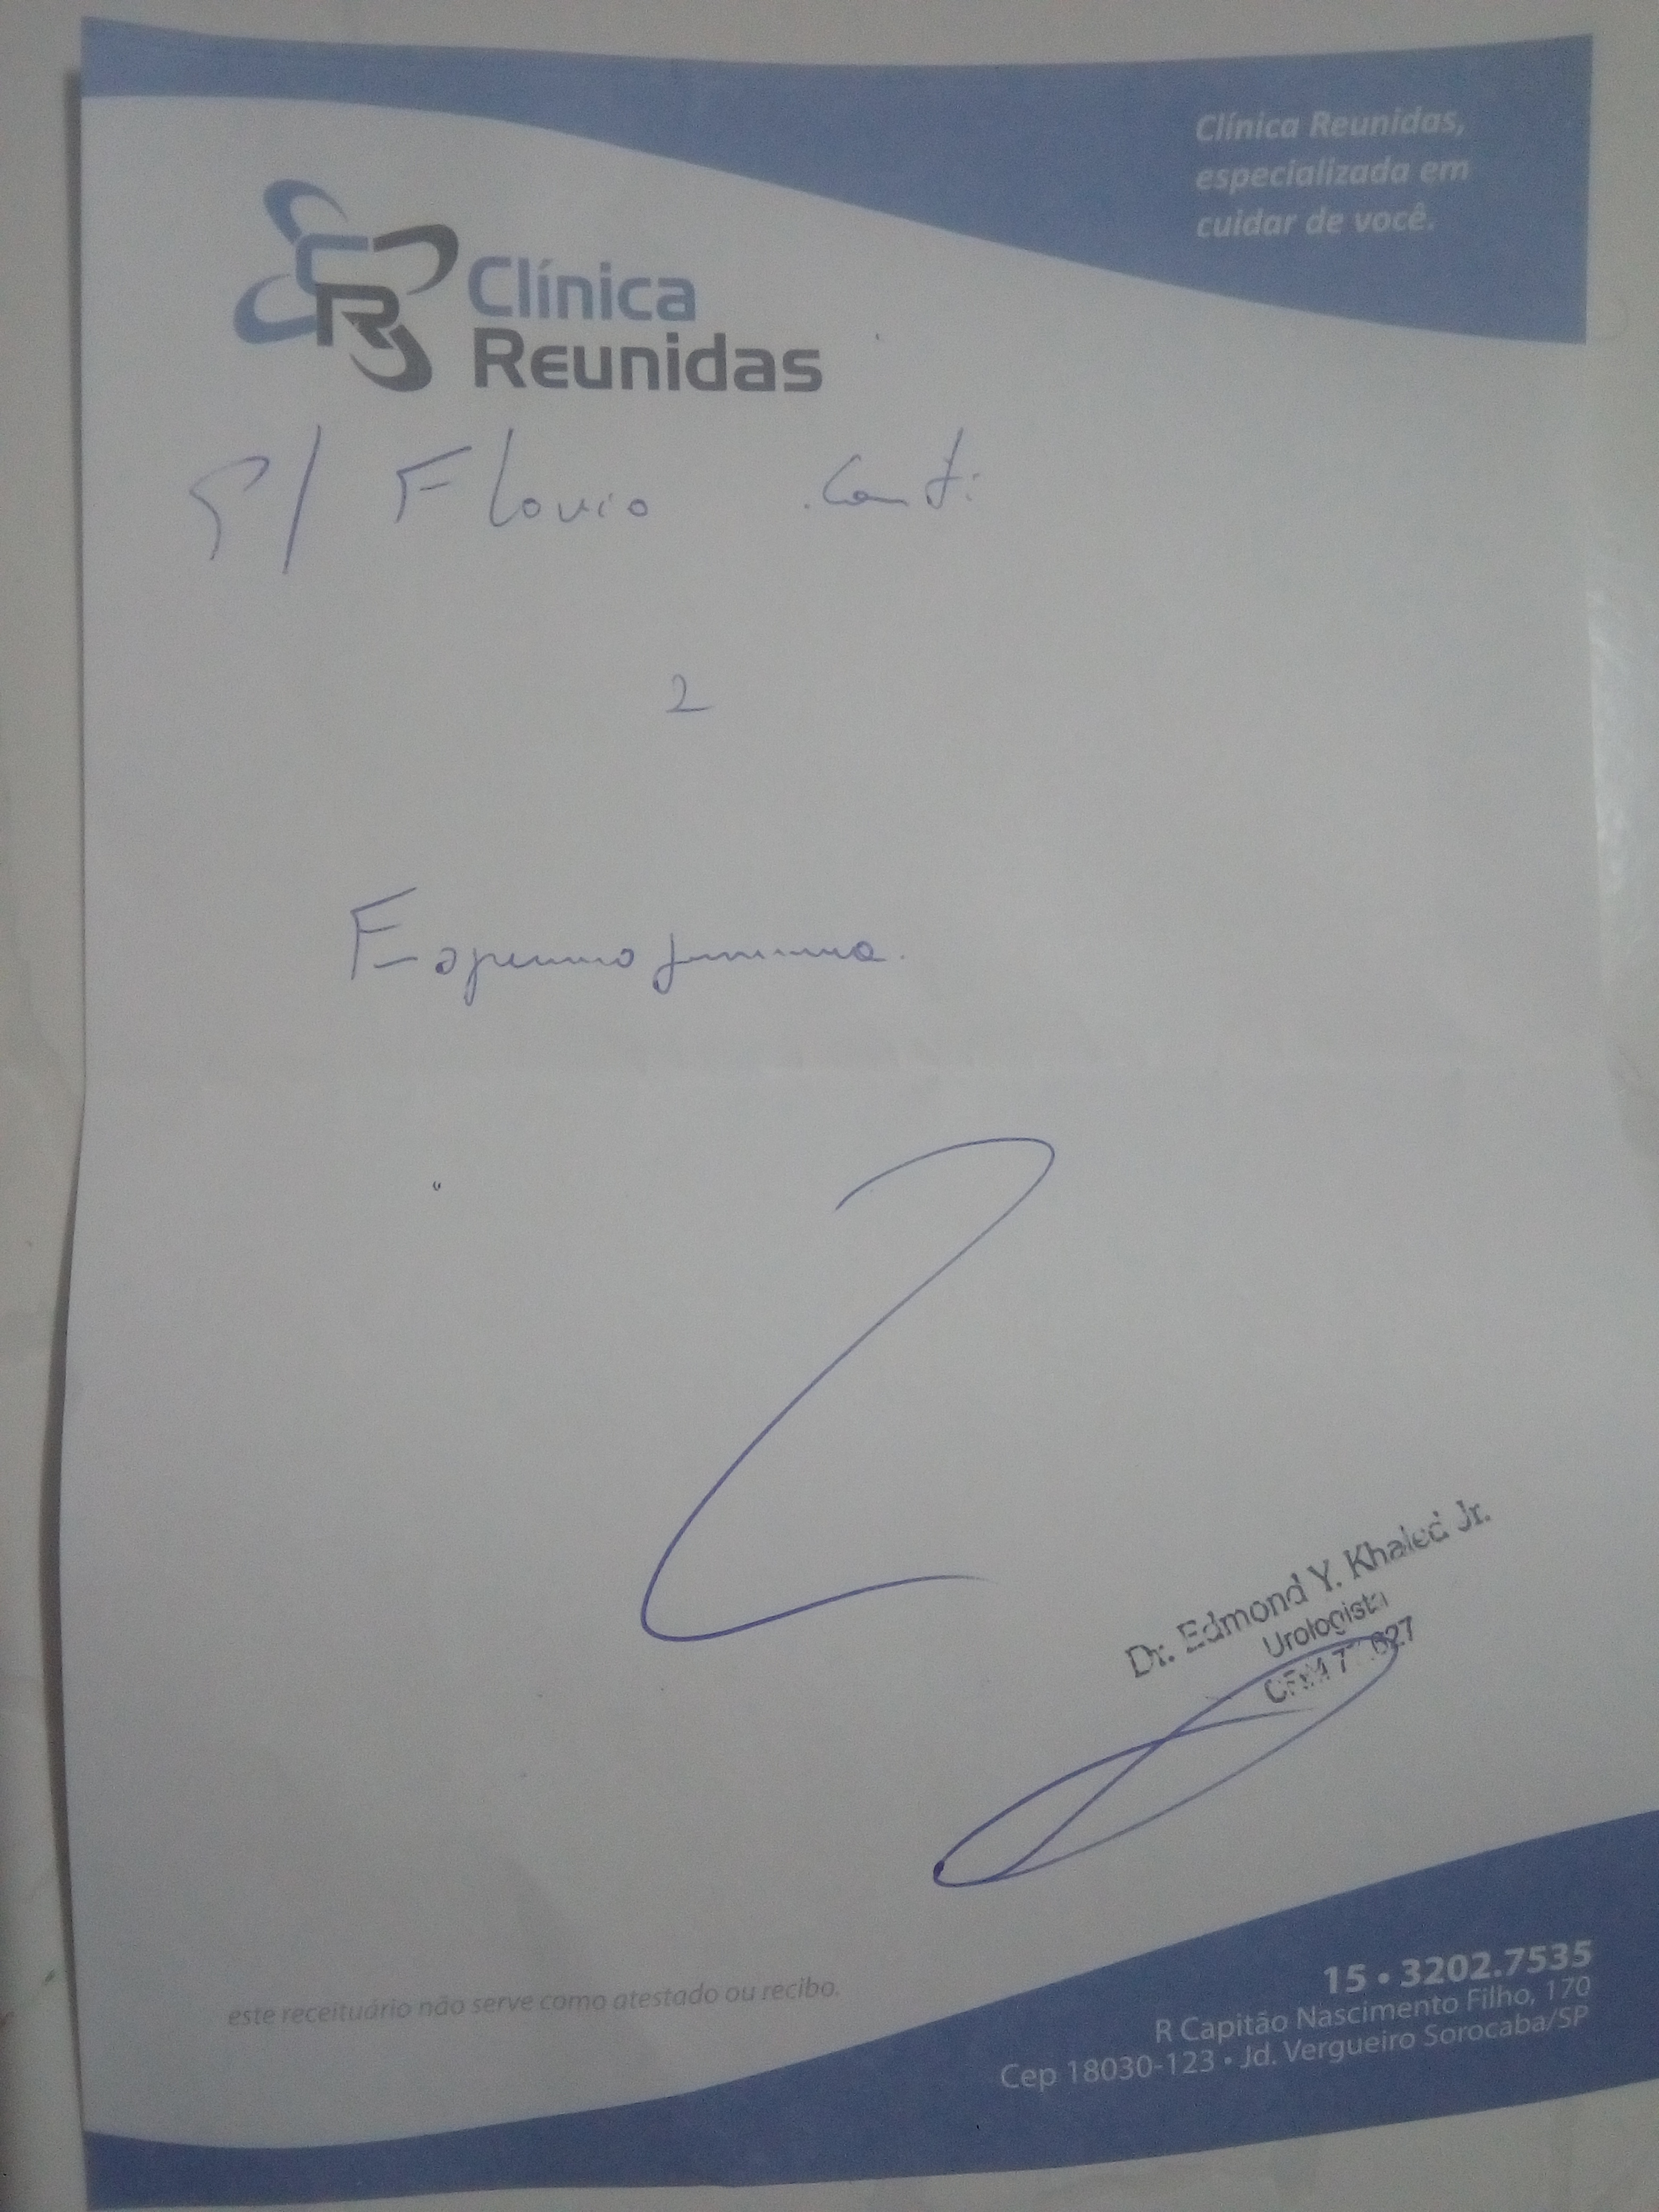 Clínica Reunidas,
especializada em
cuidar de você.
CR
Clínica
Reunidas
P/ Flavio Conti
2
Espermograma.
Dr. Edmond Y. Khaled Jr.
Urologista
CRM
este receituário não serve como atestado ou recibo.
15 • 3202.7535
R Capitão Nascimento Filho, 170
Cep 18030-123 • Jd. Vergueiro Sorocaba/SP